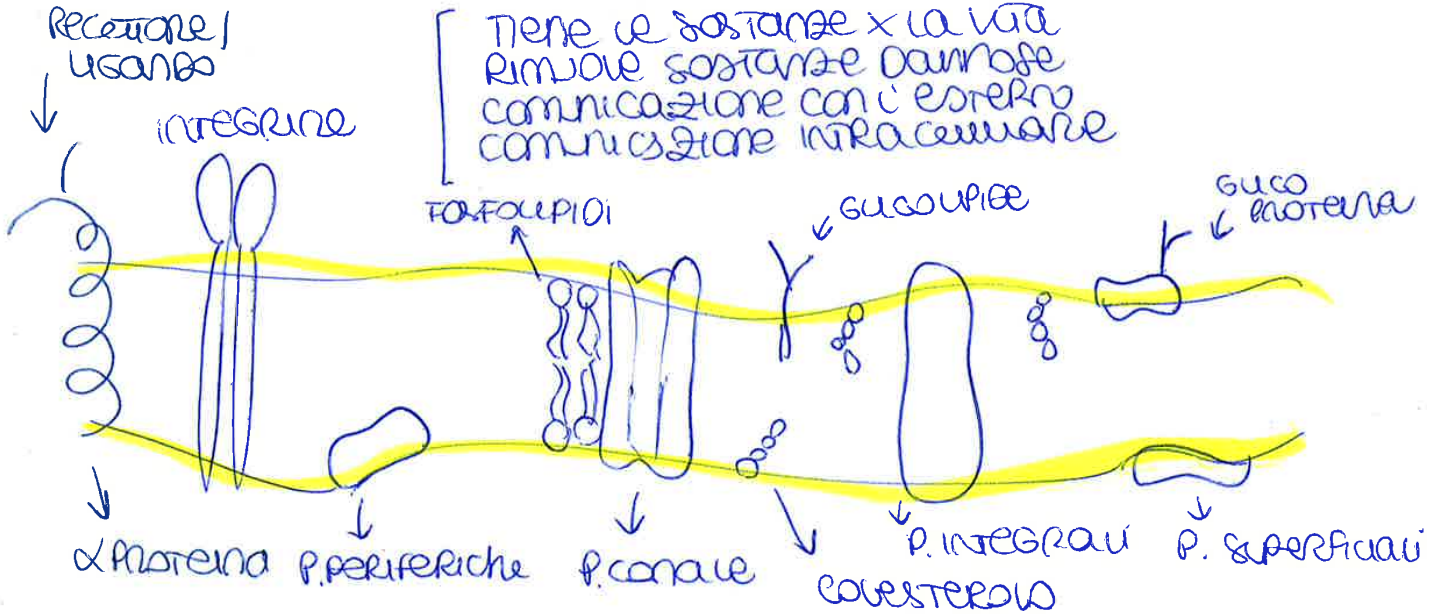 RECETTORE/
LIGANDO
TIENE LE SOSTANZE X LA VITA
RIMUOVE SOSTANZE DANNOSE
COMNICAZIONE CON L'ESTERNO
COMNICSZIONE INTRACELLULARE
INTEGRINE
FOSFOLIPIDI
GLICOLIPIDE
GLICO
PROTEINA
α PROTEINA
P. PERIFERICHE
P. CANALE
COLESTEROLO
P. INTEGRALI
P. SUPERFICIALI